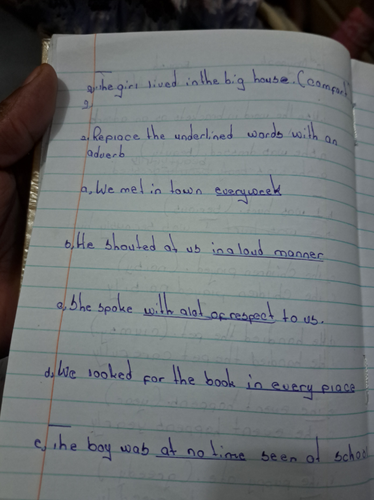 a, The girl lived in the big house. (compact)
g
a, Replace the underlined words with an
adverb
a, We met in town everyweek
b, He shouted at us in a loud manner
c, She spoke with alot of respect to us.
d, We looked for the book in every place
e, The boy was at no time seen at school